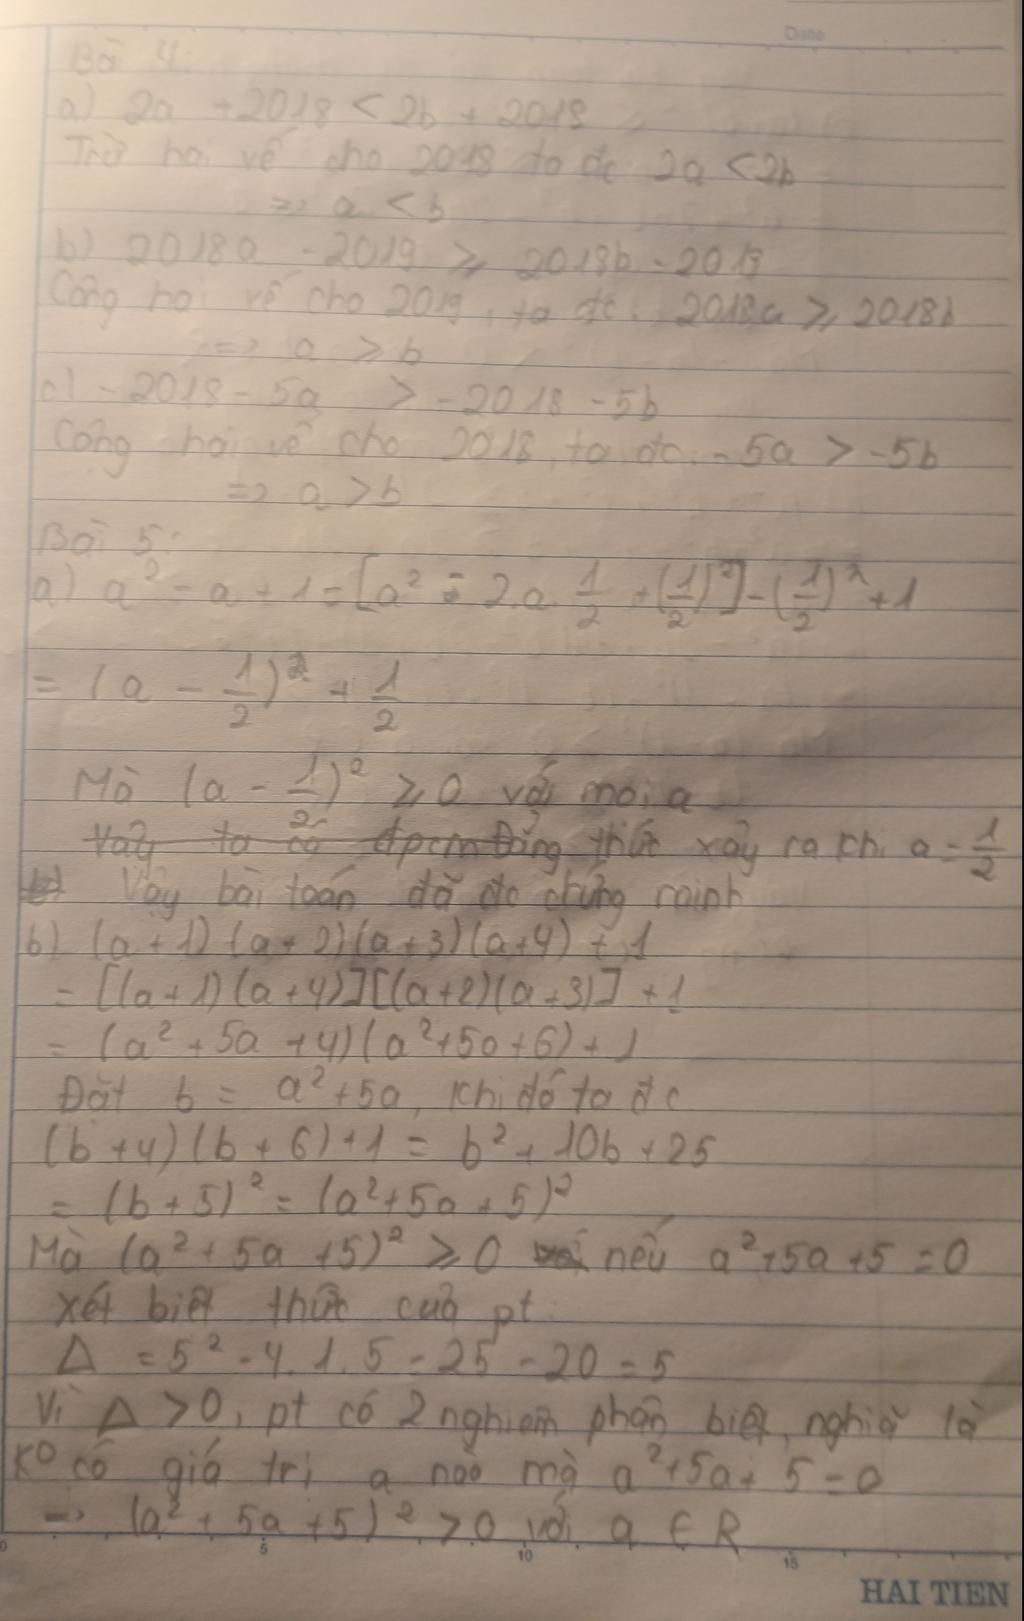 Date
Bài 4:
a) 2a + 2018 < 2b + 2018
Trừ hai vế cho 2018 ta đc: 2a < 2b
=> a < b
b) 2018a - 2019 ⩾ 2018b - 2019
Cộng hai vế cho 2019, ta đc: 2018a ⩾ 2018b
=> a ⩾ b
c) -2018 - 5a > -2018 - 5b
Cộng hai vế cho 2018, ta đc: -5a > -5b
=> a > b
Bài 5:
a) a² - a + 1 = [a² - 2.a.1/2 + (1/2)²] - (1/2)² + 1
= (a - 1/2)² + 1/2
Mà (a - 1/2)² ⩾ 0 với mọi a
Vậy ta có đpcm Đẳng thức xảy ra khi a = 1/2
b) Vậy bài toán đã đc chứng minh
b) (a+1)(a+2)(a+3)(a+4) + 1
= [(a+1)(a+4)][(a+2)(a+3)] + 1
= (a² + 5a + 4)(a² + 5a + 6) + 1
Đặt b = a² + 5a, khi đó ta đc
(b+4)(b+6) + 1 = b² + 10b + 25
= (b+5)² = (a² + 5a + 5)²
Mà (a² + 5a + 5)² ⩾ 0 nếu a² + 5a + 5 = 0
Xét biệt thức của pt:
Δ = 5² - 4.1.5 = 25 - 20 = 5
Vì Δ > 0, pt có 2 nghiệm phân biệt, nghĩa là
ko có giá trị a nào mà a² + 5a + 5 = 0
=> (a² + 5a + 5)² > 0 với a ∈ R
0 5 10 15
HAI TIEN